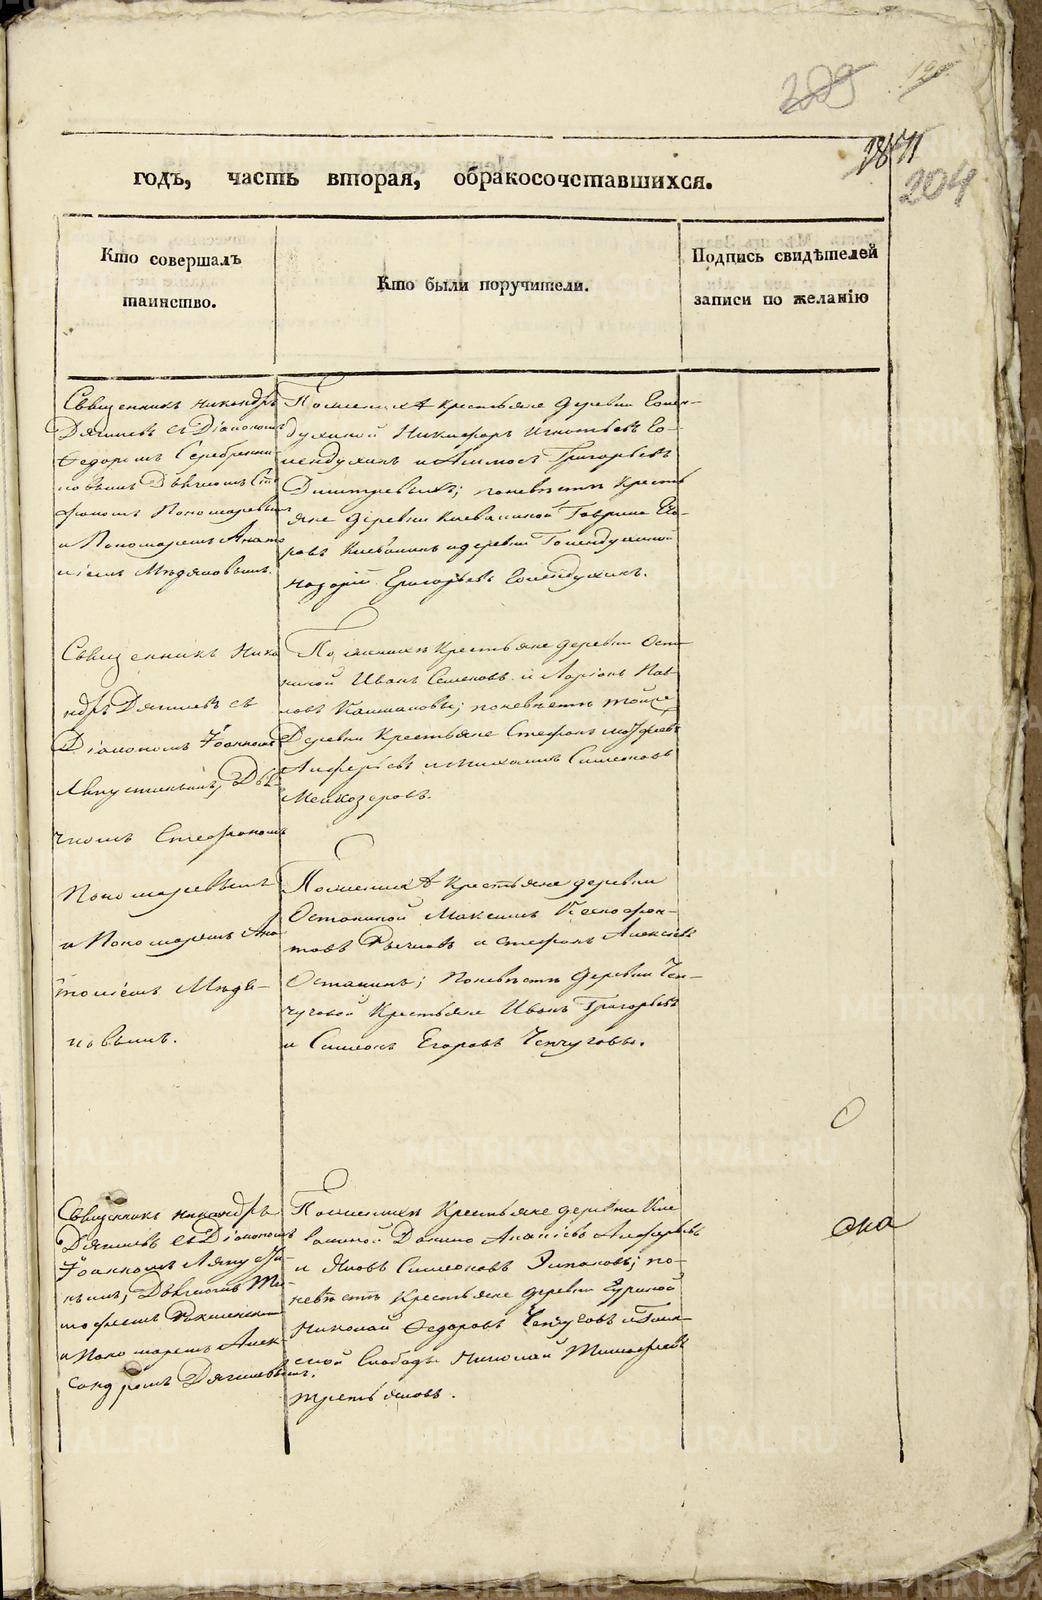 209
190
1871
204
годъ, часть вторая, обракосочетавшихся.
Кто совершалъ
таинство.
Кто были поручители.
Подпись свидѣтелей
записи по желанію
Священникъ Никандръ
Дягилевъ съ Діакономъ
Ѳедоромъ Серебренни-
ковымъ Дьячкомъ Сте
фаномъ Пономаревымъ
и Пономаремъ Анато
ліемъ
По женихѣ крестьяне деревни Голен-
духиной Никифоръ Игнатьевъ Го-
лендухинъ и Григорьевъ
Дмитревыхъ; по невѣстѣ кресть
яне деревни Клевакиной Гаврило Его-
ровъ Клевакинъ и деревни Голендухиной
Назарій Григорьевъ Голендухинъ.
Священникъ Ника
ндръ Дягилевъ съ
Діакономъ Іоанномъ
Дья-
чкомъ Стефаномъ
Пономаревымъ
и Пономаремъ Ана-
толіемъ
новымъ.
По женихѣ крестьяне деревни Оста
ниной Иванъ Семеновъ и Ларіонъ Пав-
ловъ по невѣстѣ тойже
Деревни Крестьяне Стефанъ
Алферьевъ и Михаилъ Симеоновъ
Мелкозеровъ.
По женихѣ крестьяне деревни
Останиной Максимъ Ксенофон-
товъ и Стефанъ Алексѣевъ
Останинъ; по невѣстѣ деревни Чеп-
чуговой Крестьяне Иванъ Григорьевъ
и Симеонъ Егоровъ Чепчуговы.
Священникъ Никандръ
Дягилевъ съ Діакономъ
Іоанномъ
Дьячкомъ Ти-
мофеемъ
и Пономаремъ Алек-
сандромъ Дягилевымъ.
По женихѣ Крестьяне деревни Кле
вакиной Данило Алферьевъ
и Яковъ Симеоновъ по-
невѣстѣ крестьяне деревни Гуриной
Николай Ѳедоровъ Чепчуговъ и Глин-
ской Слободы Николай Тимофеевъ
Третьяковъ.